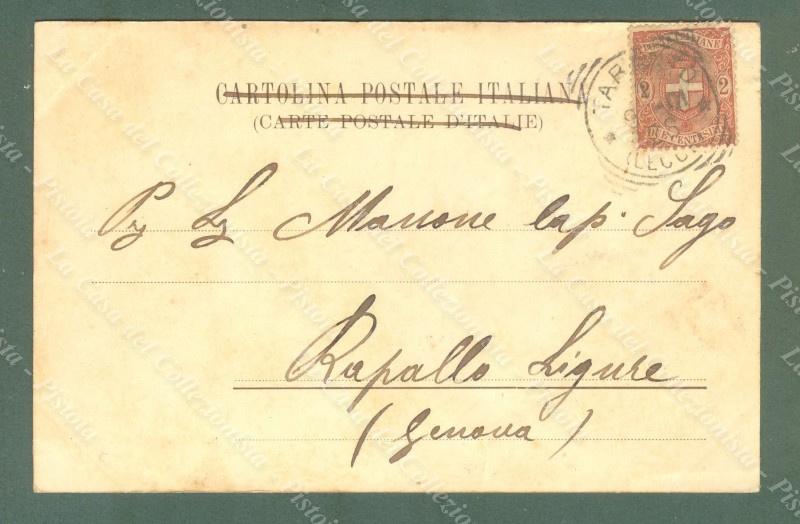 CARTOLINA POSTALE ITALIANA
(CARTE POSTALE D'ITALIE)
POSTE ITALIANE
2 2
DUE CENTESIMI
TARANTO
(LECCE)
Marrone Cap. Sago
Rapallo Ligure
(Genova)
La Casa del Collezionista - Pistoia